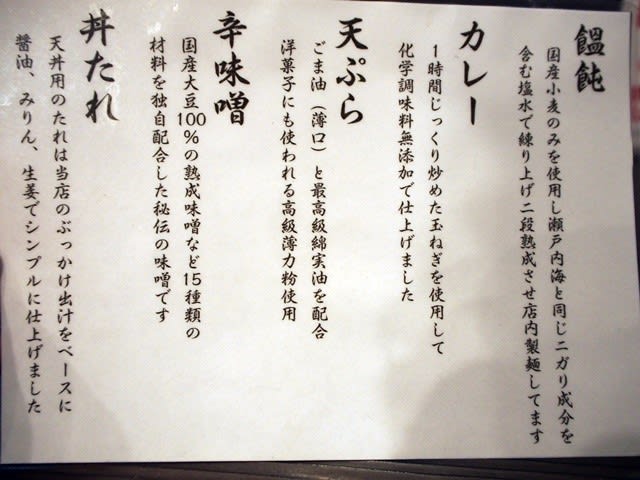 饂飩
国産小麦のみを使用し瀬戸内海と同じニガリ成分を
含む塩水で練り上げ二段熟成させ店内製麺してます
カレー
1時間じっくり炒めた玉ねぎを使用して
化学調味料無添加で仕上げました
天ぷら
ごま油（薄口）と最高級綿実油を配合
洋菓子にも使われる高級薄力粉使用
辛味噌
国産大豆100%の熟成味噌など15種類の
材料を独自配合した秘伝の味噌です
丼たれ
天丼用のたれは当店のぶっかけ出汁をベースに
醤油、みりん、生姜でシンプルに仕上げました